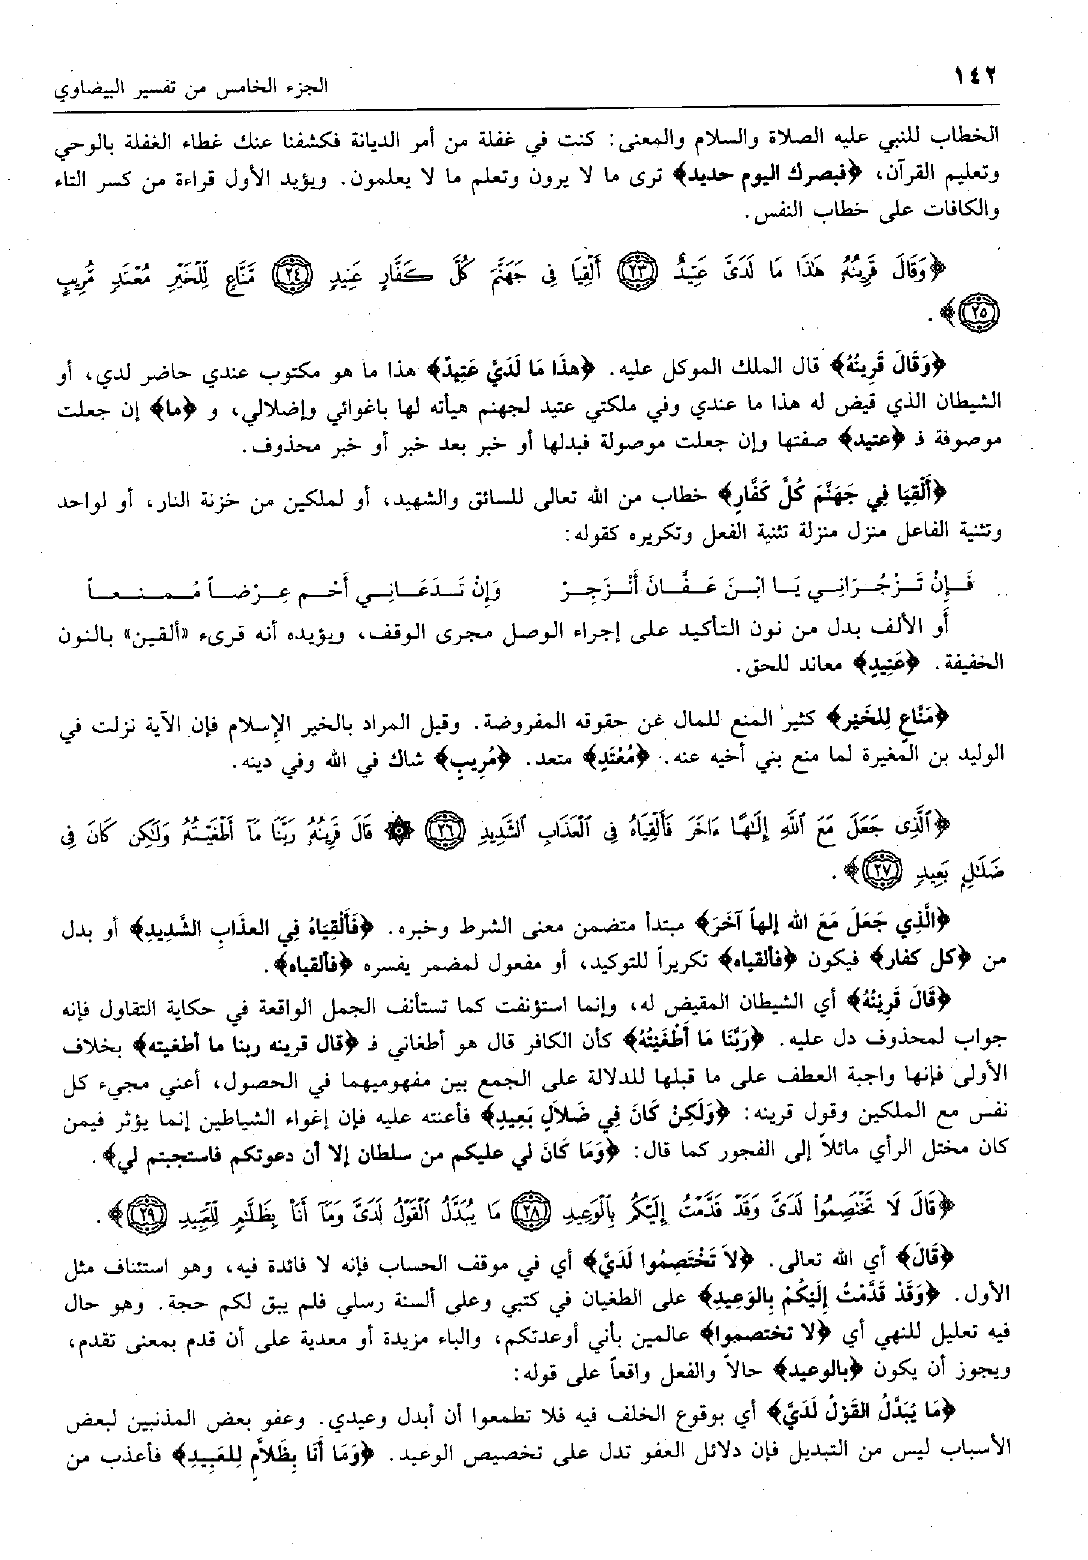 ١٤٢
الجزء الخامس من تفسير البيضاوي
الخطاب للنبي عليه الصلاة والسلام والمعنى: كنت في غفلة من أمر الديانة فكشفنا عنك غطاء الغفلة بالوحي
وتعليم القرآن، ﴿فبصرك اليوم حديد﴾ ترى ما لا يرون وتعلم ما لا يعلمون. ويؤيد الأول قراءة من كسر التاء
والكافات على خطاب النفس.
﴿وَقَالَ قَرِينُهُ هَٰذَا مَا لَدَىَّ عَتِيدٌ ﴿٢٣﴾ أَلْقِيَا فِى جَهَنَّمَ كُلَّ كَفَّارٍ عَنِيدٍ ﴿٢٤﴾ مَّنَّاعٍ لِّلْخَيْرِ مُعْتَدٍ مُّرِيبٍ
﴿٢٥﴾﴾.
﴿وَقَالَ قَرِينُهُ﴾ قال الملك الموكل عليه. ﴿هذَا مَا لَدَيَّ عَتِيدٌ﴾ هذا ما هو مكتوب عندي حاضر لدي، أو
الشيطان الذي قيض له هذا ما عندي وفي ملكتي عتيد لجهنم هيأته لها بإغوائي وإضلالي، و ﴿ما﴾ إن جعلت
موصوفة فـ ﴿عتيد﴾ صفتها وإن جعلت موصولة فبدلها أو خبر بعد خبر أو خبر محذوف.
﴿أَلْقِيَا فِي جَهَنَّمَ كُلَّ كَفَّارٍ﴾ خطاب من الله تعالى للسائق والشهيد، أو لملكين من خزنة النار، أو لواحد
وتثنية الفاعل منزل منزلة تثنية الفعل وتكريره كقوله:
فَـإِنْ تَـزْجُـرَانِـي يَـا ابْـنَ عَـفَّـانَ أَنْـزَجِـرْ وَإِنْ تَـدَعَـانِـي أَحْـمِ عِـرْضـاً مُـمـنـعـاً
أو الألف بدل من نون التأكيد على إجراء الوصل مجرى الوقف، ويؤيده أنه قرىء «ألقين» بالنون
الخفيفة. ﴿عَنِيدٍ﴾ معاند للحق.
﴿مَنَّاعٍ لِلخَيْرِ﴾ كثير المنع للمال عن حقوقه المفروضة. وقيل المراد بالخير الإسلام فإن الآية نزلت في
الوليد بن المغيرة لما منع بني أخيه عنه. ﴿مُعْتَدٍ﴾ متعد. ﴿مُرِيبٍ﴾ شاك في الله وفي دينه.
﴿ٱلَّذِى جَعَلَ مَعَ ٱللَّهِ إِلَٰهًا ءَاخَرَ فَأَلْقِيَاهُ فِى ٱلْعَذَابِ ٱلشَّدِيدِ ﴿٢٦﴾ ۞ قَالَ قَرِينُهُ رَبَّنَا مَآ أَطْغَيْتُهُ وَلَٰكِن كَانَ فِى
ضَلَٰلٍ بَعِيدٍ ﴿٢٧﴾﴾.
﴿الَّذِي جَعَلَ مَعَ الله إِلهاً آخَرَ﴾ مبتدأ متضمن معنى الشرط وخبره. ﴿فَأَلْقِيَاهُ فِي العَذَابِ الشَّدِيدِ﴾ أو بدل
من ﴿كل كفار﴾ فيكون ﴿فألقياه﴾ تكريراً للتوكيد، أو مفعول لمضمر يفسره ﴿فألقياه﴾.
﴿قَالَ قَرِينُهُ﴾ أي الشيطان المقيض له، وإنما استؤنفت كما تستأنف الجمل الواقعة في حكاية التقاول فإنه
جواب لمحذوف دل عليه. ﴿رَبَّنَا مَا أَطْغَيْتُهُ﴾ كأن الكافر قال هو أطغاني فـ ﴿قال قرينه ربنا ما أطغيته﴾ بخلاف
الأولى فإنها واجبة العطف على ما قبلها للدلالة على الجمع بين مفهوميهما في الحصول، أعني مجيء كل
نفس مع الملكين وقول قرينه: ﴿وَلَكِنْ كَانَ فِي ضَلاَلٍ بَعِيدٍ﴾ فأعنته عليه فإن إغواء الشياطين إنما يؤثر فيمن
كان مختل الرأي مائلاً إلى الفجور كما قال: ﴿وَمَا كَانَ لي عليكم من سلطان إلا أن دعوتكم فاستجبتم لي﴾.
﴿قَالَ لَا تَخْتَصِمُوا۟ لَدَىَّ وَقَدْ قَدَّمْتُ إِلَيْكُم بِٱلْوَعِيدِ ﴿٢٨﴾ مَا يُبَدَّلُ ٱلْقَوْلُ لَدَىَّ وَمَآ أَنَا۠ بِظَلَّٰمٍ لِّلْعَبِيدِ ﴿٢٩﴾﴾.
﴿قَالَ﴾ أي الله تعالى. ﴿لاَ تَخْتَصِمُوا لَدَيَّ﴾ أي في موقف الحساب فإنه لا فائدة فيه، وهو استئناف مثل
الأول. ﴿وَقَدْ قَدَّمْتُ إِلَيْكُمْ بِالوَعِيدِ﴾ على الطغيان في كتبي وعلى ألسنة رسلي فلم يبق لكم حجة. وهو حال
فيه تعليل للنهي أي ﴿لا تختصموا﴾ عالمين بأني أوعدتكم، والباء مزيدة أو معدية على أن قدم بمعنى تقدم،
ويجوز أن يكون ﴿بالوعيد﴾ حالاً والفعل واقعاً على قوله:
﴿مَا يُبَدَّلُ القَوْلُ لَدَيَّ﴾ أي بوقوع الخلف فيه فلا تطمعوا أن أبدل وعيدي. وعفو بعض المذنبين لبعض
الأسباب ليس من التبديل فإن دلائل العفو تدل على تخصيص الوعيد. ﴿وَمَا أَنَا بِظَلاَّمٍ لِلعَبِيدِ﴾ فأعذب من